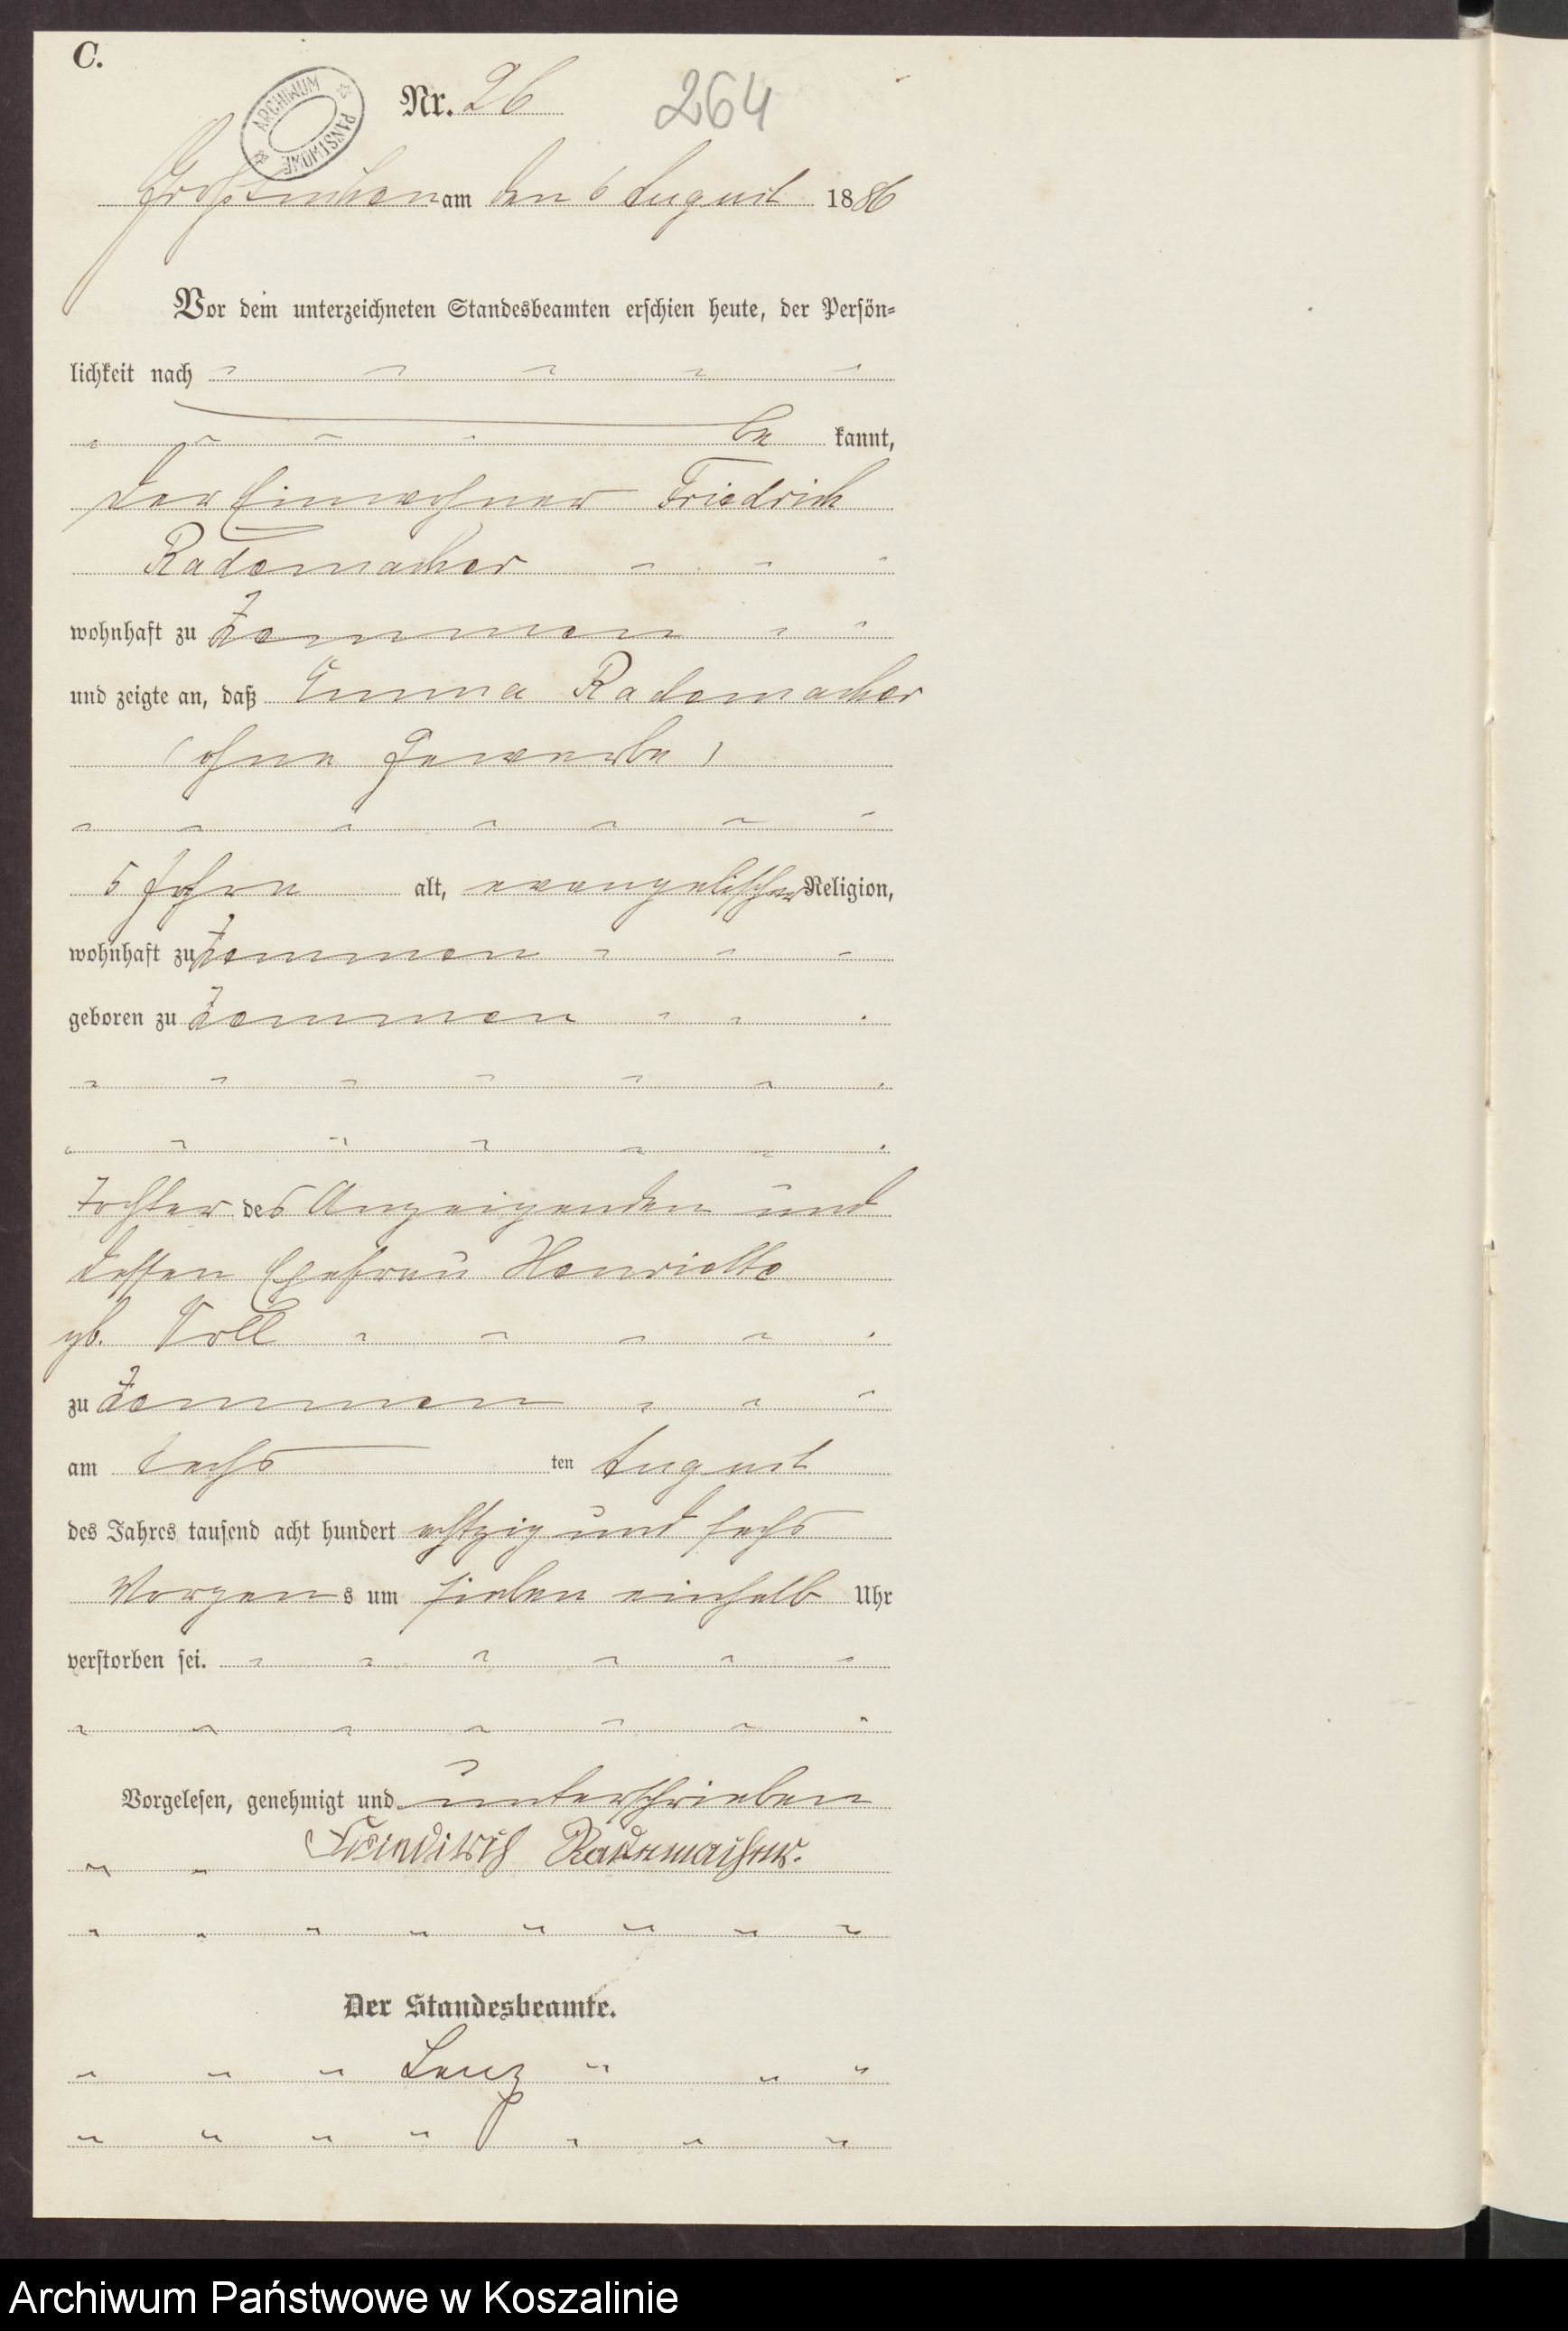 C.
ARCHIWUM PAŃSTWOWE
Nr. 26 264
am den 6 August 1886
Vor dem unterzeichneten Standesbeamten erschien heute, der Persön-
lichkeit nach
be kannt,
der Einwohner Friedrich
Rademacher
wohnhaft zu Zemmen
und zeigte an, daß Emma Rademacher
(ohne Gewerbe)
5 Jahre alt, evangelischer Religion,
wohnhaft zu Zemmen
geboren zu Zemmen
Tochter des Anzeigenden und
dessen Ehefrau Henriette
gb. Voll
zu Zemmen
am sechs ten August
des Jahres tausend acht hundert achtzig und sechs
Morgens um sieben einhalb Uhr
verstorben sei.
Vorgelesen, genehmigt und unterschrieben
Friedrich Rademacher.
Der Standesbeamte.
Lenz
Archiwum Państwowe w Koszalinie